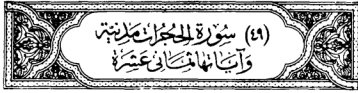 (٤٩) سُورَةُ الحُجُرَاتِ مَدَنِيَّة
وَآيَاتُهَا ثَمَانِي عَشَرَة